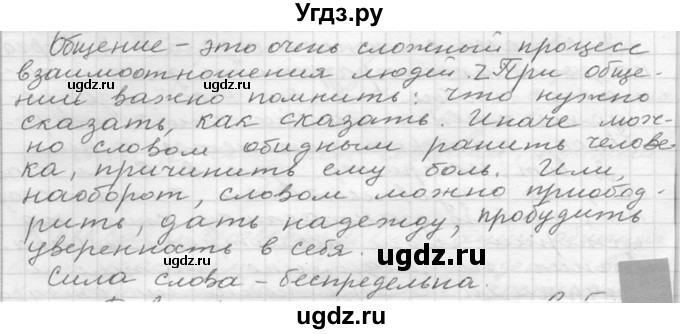 Угдз.ру
Общение – это очень сложный процесс
взаимоотношения людей. Z При обще-
нии важно помнить: что нужно
сказать, как сказать. Иначе мож-
но словом обидным ранить челове-
ка, причинить ему боль. Или,
наоборот, словом можно приобод-
рить, дать надежду, пробудить
уверенность в себя.
Сила слова – беспредельна.
ugdz.ru
ugdz.ru
ugdz.ru
ugdz.ru
ugdz.ru
ugdz.ru